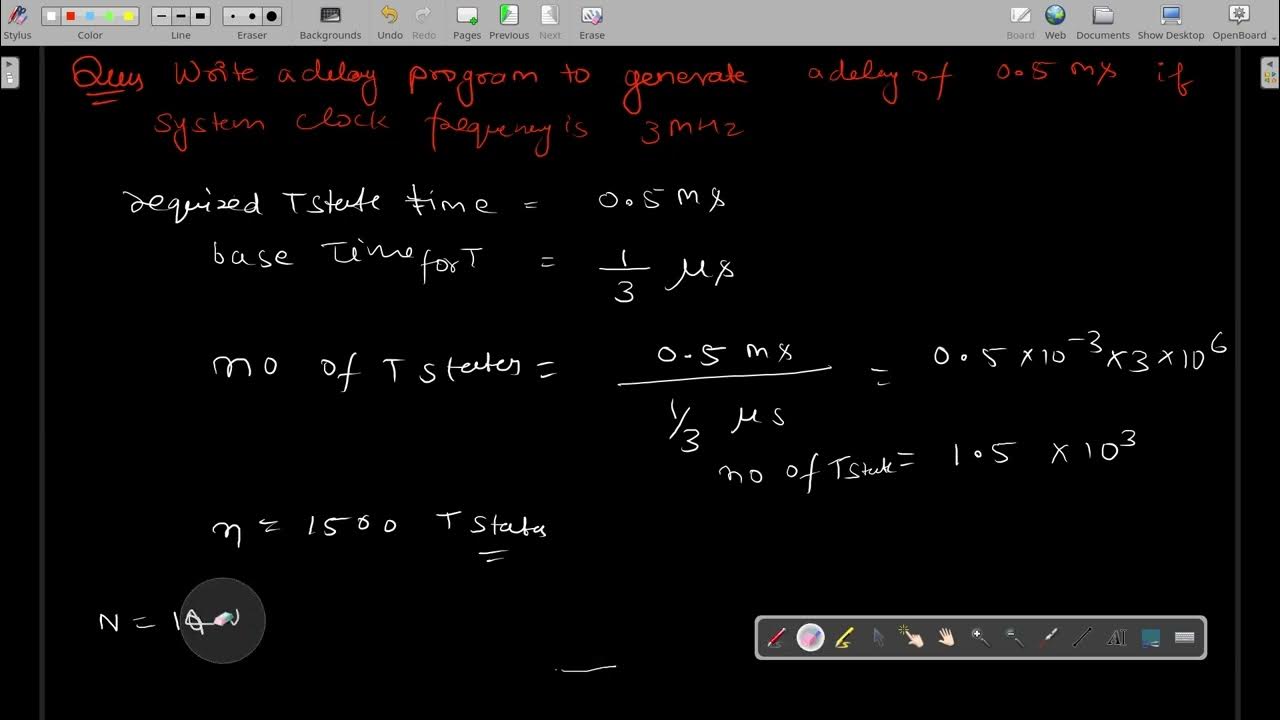 Color
Line
Eraser
Backgrounds
Undo
Redo
Pages
Previous
Next
Erase
Stylus
Board
Web
Documents
Show Desktop
OpenBoard
Ques Write a delay program to generate a delay of 0.5 ms if
system clock frequency is 3 MHz
required T state time = 0.5 ms
base Time for T = 1/3 μs
no of T states = 0.5 ms / 1/3 μs = 0.5 × 10⁻³ × 3 × 10⁶
no of T state = 1.5 × 10³
n = 1500 T states
N = 1
AI